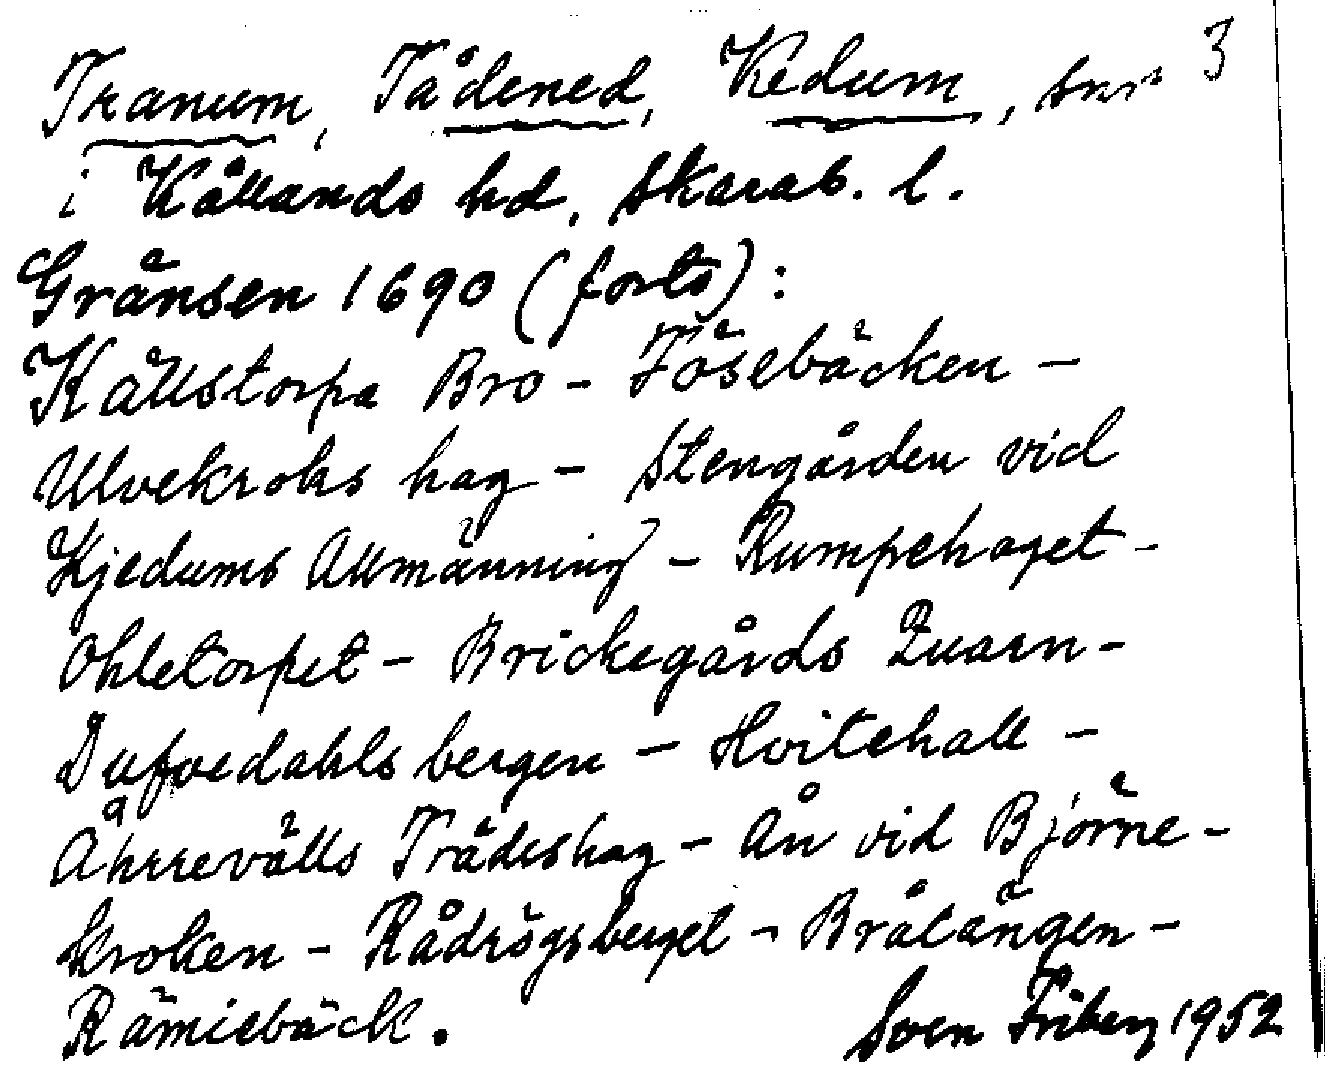 Tranum, Tådened, Kedum, snr 3
i Kållands hd, Skarab. l.
Gränsen 1690 (forts):
Källstorpa Bro - Fösebäcken -
Ulvekroks hag - Stengården vid
Kjedums Allmänning - Rumpehaget -
Ohletorpet - Brickegårds Quarn -
Dufvedahls bergen - Hvitehall -
Åhrrevälls Trädeshag - Ån vid Björne-
kroken - Rådrögsberget - Bråtängen -
Rämiebäck.
Sven Friberg 1952